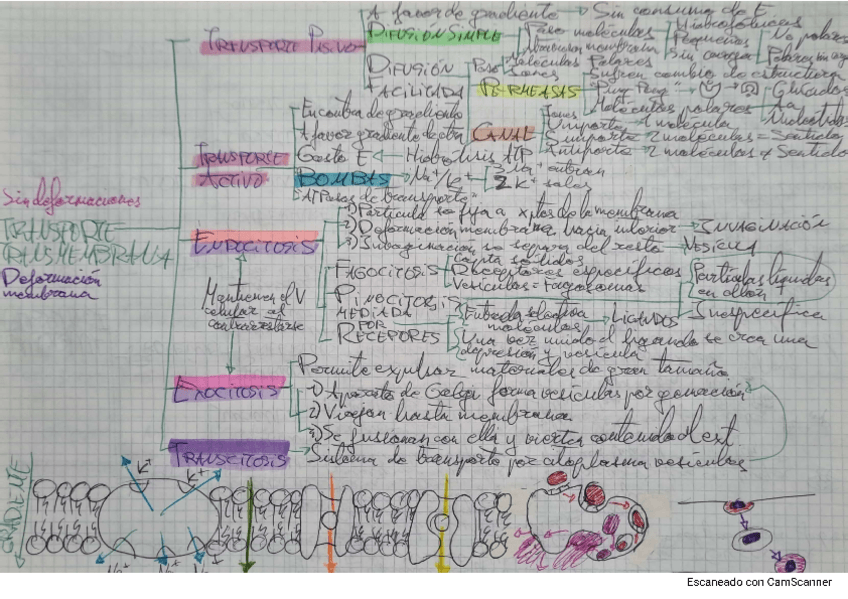 A favor de gradiente → Sin consumo de E
TRANSPORTE PASIVO
DIFUSIÓN SIMPLE
Paso moléculas
Atraviesan membrana
Hidrofóbicas
Pequeñas
Sin carga
No polares
Polares sin carga
DIFUSIÓN FACILITADA
Paso
Moléculas Polares
Iones
PERMEASAS
Sufren cambio de estructura
Ping Pong
Moléculas polares
Glúcidos
Aa
Nucleótidos
CANAL
Iones
Uniporte 1 molécula
Simporte 2 moléculas = Sentido
Antiporte → 2 moléculas ≠ Sentido
TRANSPORTE ACTIVO
En contra de gradiente
A favor gradiente de otra
Gasto E ← Hidrólisis ATP
BOMBAS → Na+/K+
3 Na+ entran
2 K+ salen
ATPasas de transporte
Sin deformaciones
TRANSPORTE
TRANSMEMBRANA
Deformación
membrana
ENDOCITOSIS
1) Partícula se fija a xptos de la membrana
2) Deformación membrana hacia interior → INVAGINACIÓN
3) Invaginación se separa del resto → VESÍCULA
Mantienen el V
celular al
contrarrestarse
FAGOCITOSIS
Capta sólidos
Receptores específicos
Vesículas = Fagosomas
PINOCITOSIS
Partículas líquidas
Inespecífica
MEDIADA POR RECEPTORES
Entrada selectiva
moléculas
LIGANDOS
Una vez unido el ligando se crea una
depresión y vesícula
EXOCITOSIS
Permite expulsar materiales de gran tamaño
1) Aparato de Golgi forma vesículas por gemación
2) Viajan hasta membrana
3) Se fusionan con ella y vierten contenido al ext
TRANSCITOSIS
Sistema de transporte por citoplasma vesículas
GRADIENTE
K+
K+
Na+
Na+
Na+
Escaneado con CamScanner